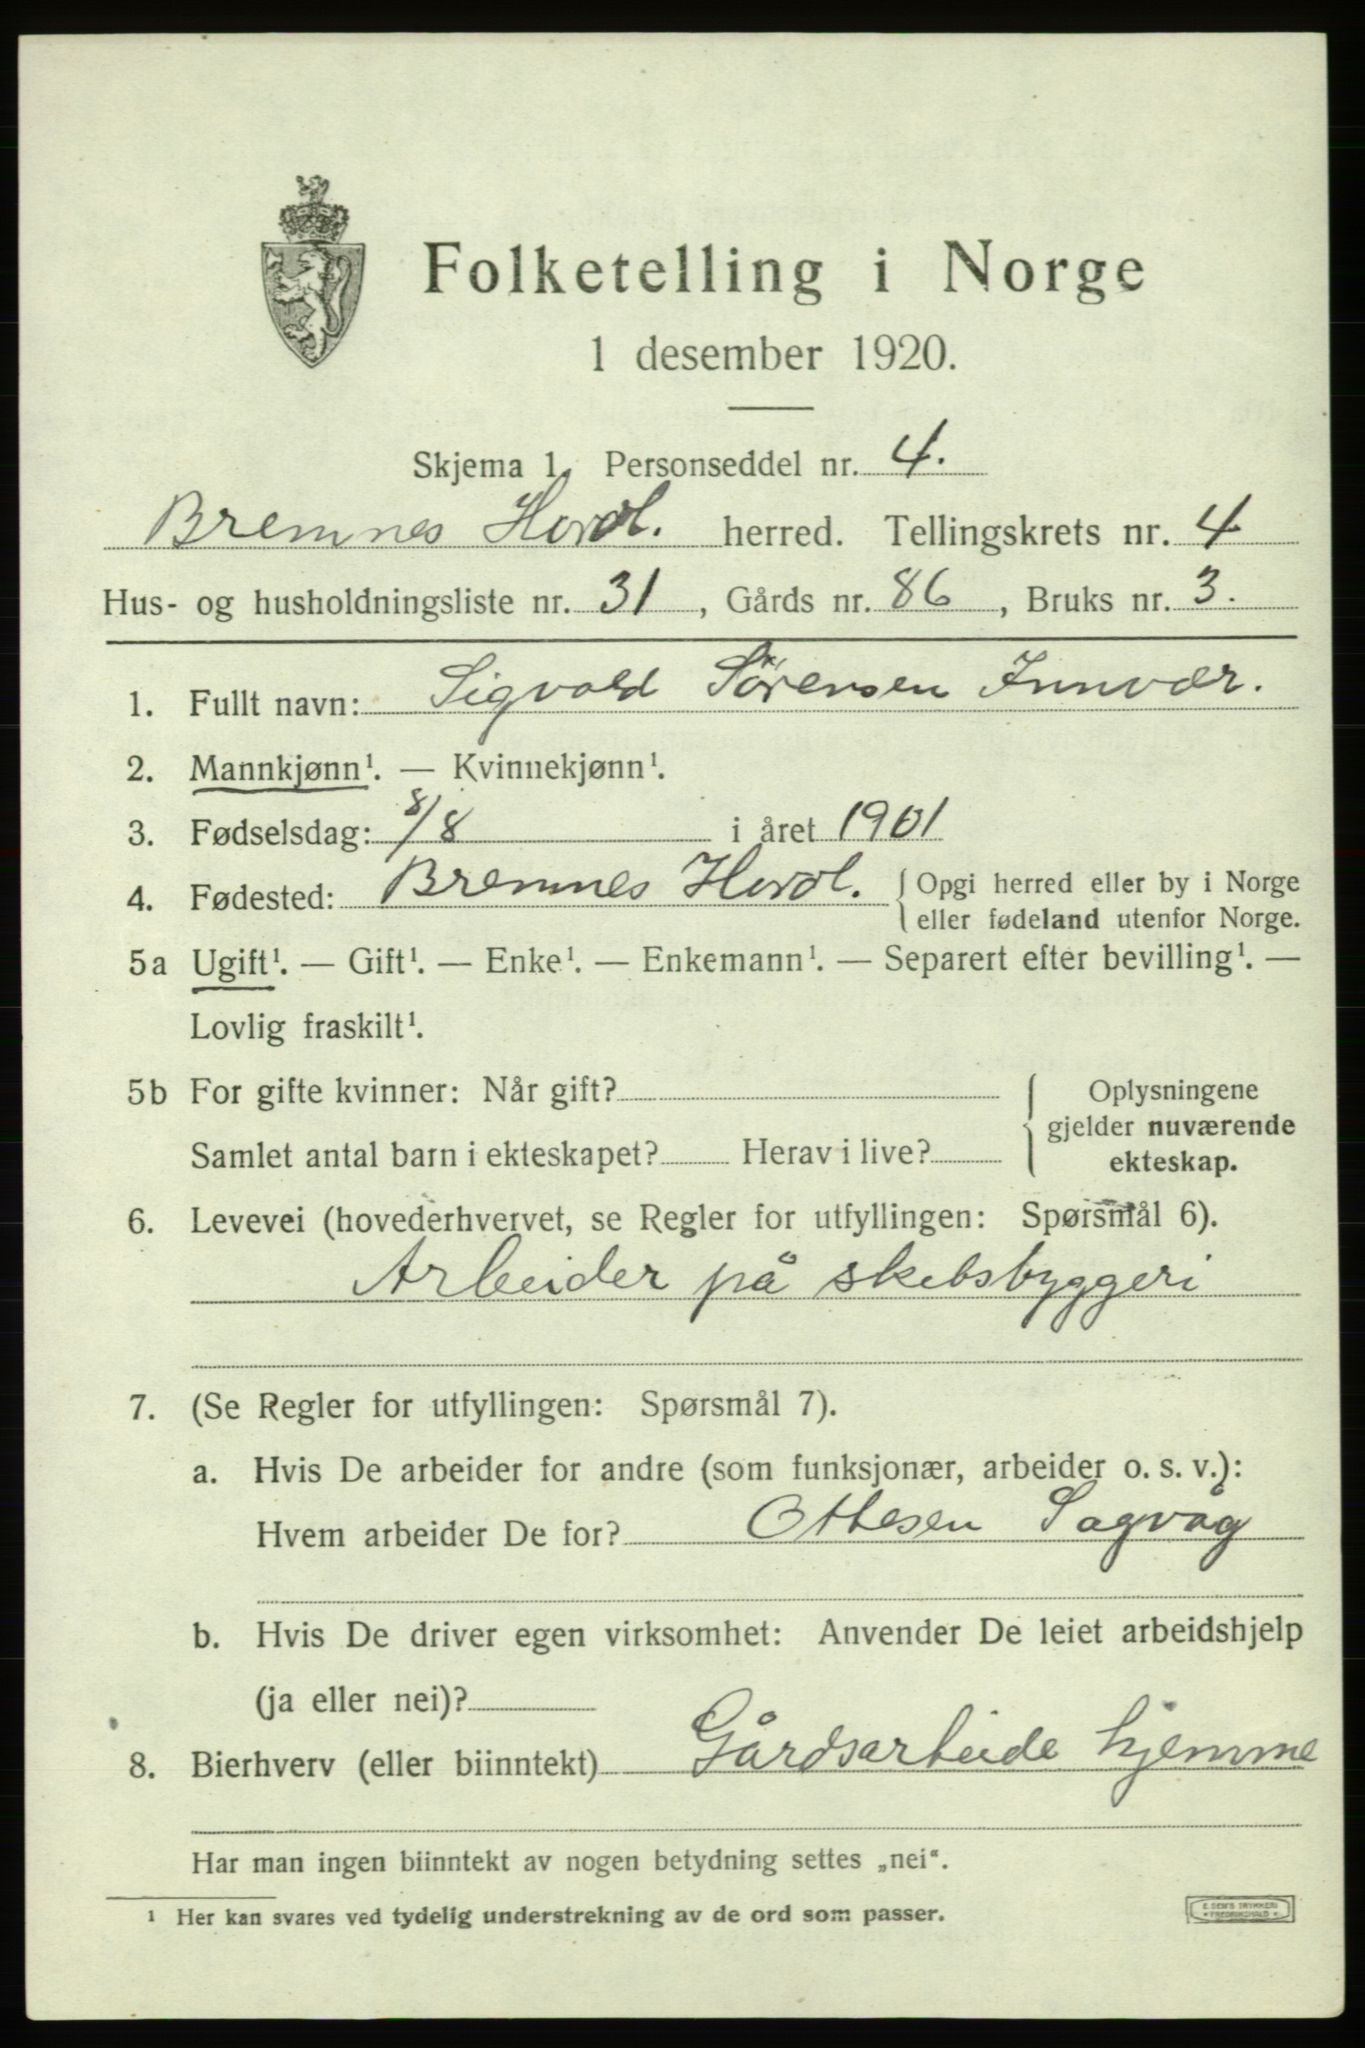 Folketelling i Norge
1 desember 1920.
Skjema 1. Personseddel nr. 4.
Bremnes Hordl. herred. Tellingskrets nr. 4
Hus- og husholdningsliste nr. 31, Gårds nr. 86, Bruks nr. 3.
1. Fullt navn: Sigvald Sörensen Innvær.
2. Mannkjønn¹. — Kvinnekjønn¹.
3. Fødselsdag: 8/8 i året 1901
4. Fødested: Bremnes Hordl. { Opgi herred eller by i Norge
eller fødeland utenfor Norge.
5a Ugift¹. — Gift¹. — Enke¹. — Enkemann¹. — Separert efter bevilling¹. —
Lovlig fraskilt¹.
5b For gifte kvinner: Når gift?
Samlet antal barn i ekteskapet? Herav i live?
{ Oplysningene
gjelder nuværende
ekteskap.
6. Levevei (hovederhvervet, se Regler for utfyllingen: Spørsmål 6).
Arbeider på skebsbyggeri
7. (Se Regler for utfyllingen: Spørsmål 7).
a. Hvis De arbeider for andre (som funksjonær, arbeider o. s. v.):
Hvem arbeider De for? Ottesen Sagvåg
b. Hvis De driver egen virksomhet: Anvender De leiet arbeidshjelp
(ja eller nei)?
8. Bierhverv (eller biinntekt) Gårdsarbeide hjemme
Har man ingen biinntekt av nogen betydning settes „nei“.
¹ Her kan svares ved tydelig understrekning av de ord som passer.
E. SEM'S TRYKKERI
* FREDRIKSHALD *